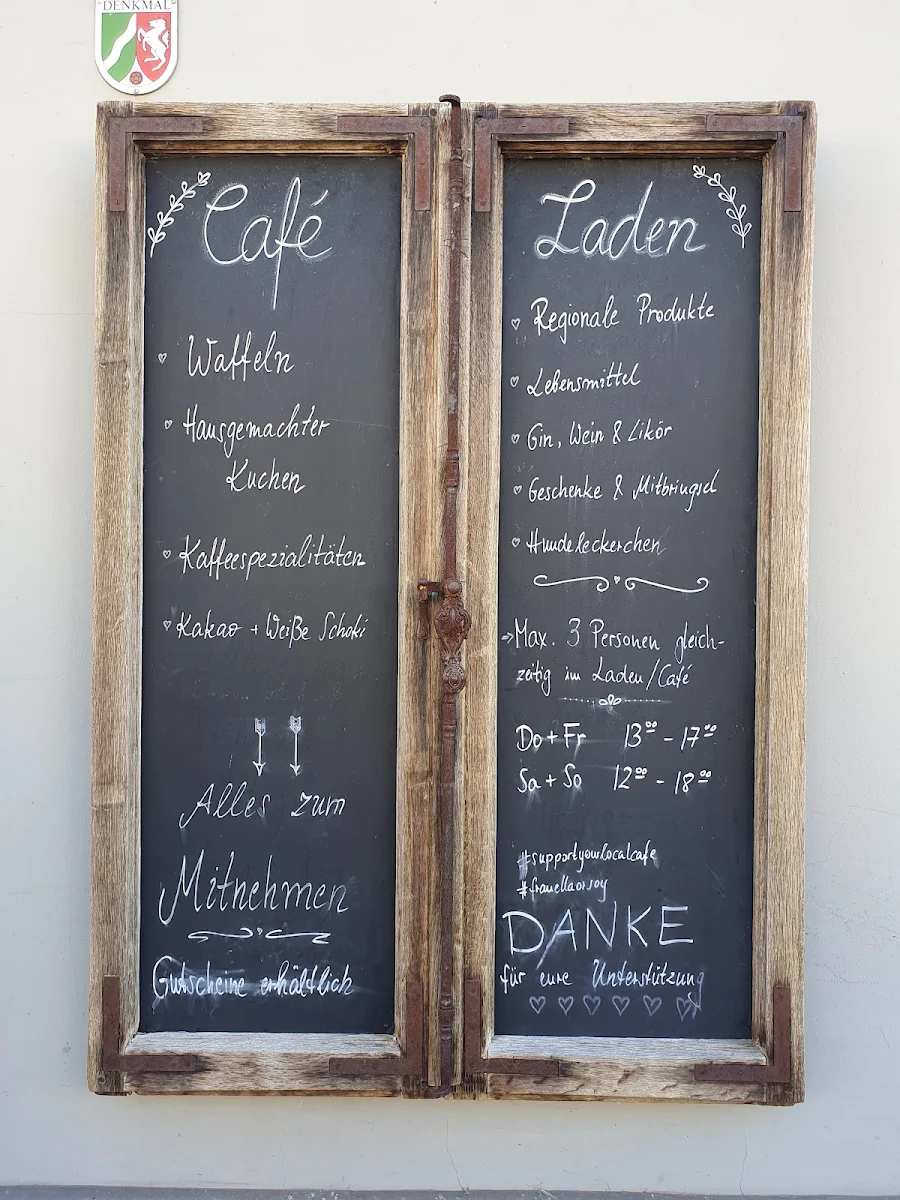 DENKMAL
Café
Waffeln
Hausgemachter
Kuchen
Kaffeespezialitäten
Kakao + Weiße Schoki
Alles zum
Mitnehmen
Gutscheine erhältlich
Laden
Regionale Produkte
Lebensmittel
Gin, Wein & Likör
Geschenke & Mitbringsel
Hundeleckerchen
Max. 3 Personen gleich-
zeitig im Laden/Café
Do + Fr 13⁰⁰ - 17⁰⁰
Sa + So 12⁰⁰ - 18⁰⁰
#supportyourlocalcafe
DANKE
für eure Unterstützung